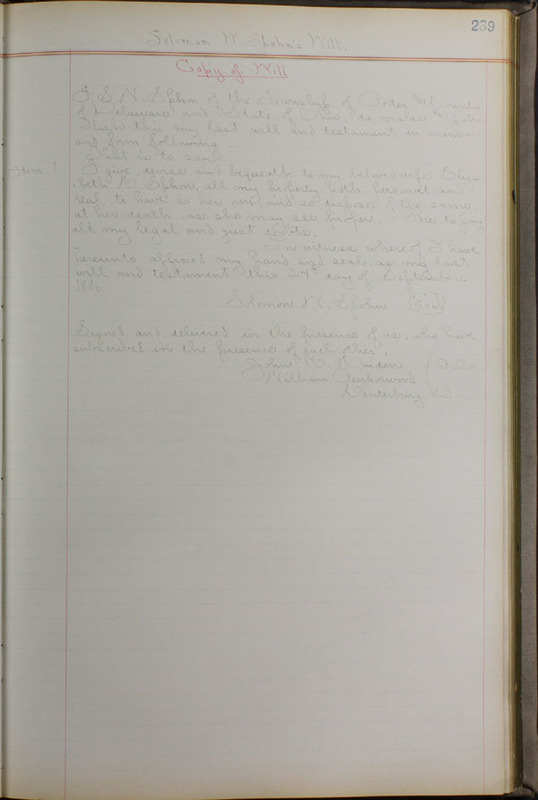 239
Solomon W. Spohn's Will.
Copy of Will
I, S. N. Spohn of the Township of and County
of Delaware and State of do make and pub-
lish this my last will and testament in manner
and form following
that is to say:
Item 1 I give devise and bequeath to my beloved wife Eliza-
beth Spohn, all my property both personal and
real, to have as her own and to dispose of the same
at her death as she may see proper. She to pay
all my legal and just debts.
In witness whereof I have
hereunto affixed my hand and seal, as my last
will and testament this 24th day of September
1886
Solomon N. Spohn Seal
Signed and delivered in the presence of us, who have
subscribed in the presence of each other.
John
William
Canterbury